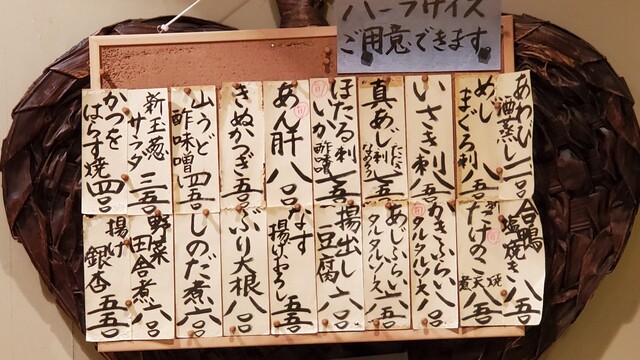 ハーフサイズ
ご用意できます
あわび酒蒸し 二二〇
めじまぐろ刺 八五〇
いさき刺 八五〇
真あじ刺
たたき
なめろう
ほたるいか 刺 酢味噌 七五〇
あん肝 八〇〇
きぬかつぎ 五五〇
山うど酢味噌 四五〇
新玉葱サラダ 三五〇
かつをはらす焼 四〇〇
合鴨塩焼き 八五〇
たけのこ 焼 天 煮 八五〇
かきふらい タルタルソース 八〇〇
あじふらい タルタルソース 六五〇
揚出し豆腐 六〇〇
なす揚げおろし 五五〇
ぶり大根 八〇〇
しのだ煮 六〇〇
野菜田舎煮 六〇〇
揚げ銀杏 五五〇